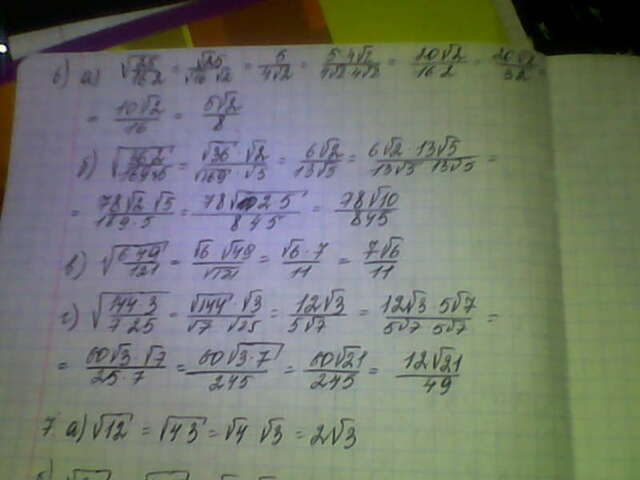 6) а) √(25/16·2) = √25/√16·√2 = 5/4√2 = 5·4√2/4√2·4√2 = 20√2/16·2 = 20√2/32 =
= 10√2/16 = 5√2/8
б) √(36·2/169·5) = √36·√2/√169·√5 = 6√2/13√5 = 6√2·13√5/13√5·13√5 =
= 78√2·√5/169·5 = 78√2·5/845 = 78√10/845
в) √(6·49/121) = √6·√49/√121 = √6·7/11 = 7√6/11
г) √(144·3/7·25) = √144·√3/√7·√25 = 12√3/5√7 = 12√3·5√7/5√7·5√7 =
= 60√3·√7/25·7 = 60√3·7/245 = 60√21/245 = 12√21/49
7. а) √12 = √4·3 = √4·√3 = 2√3